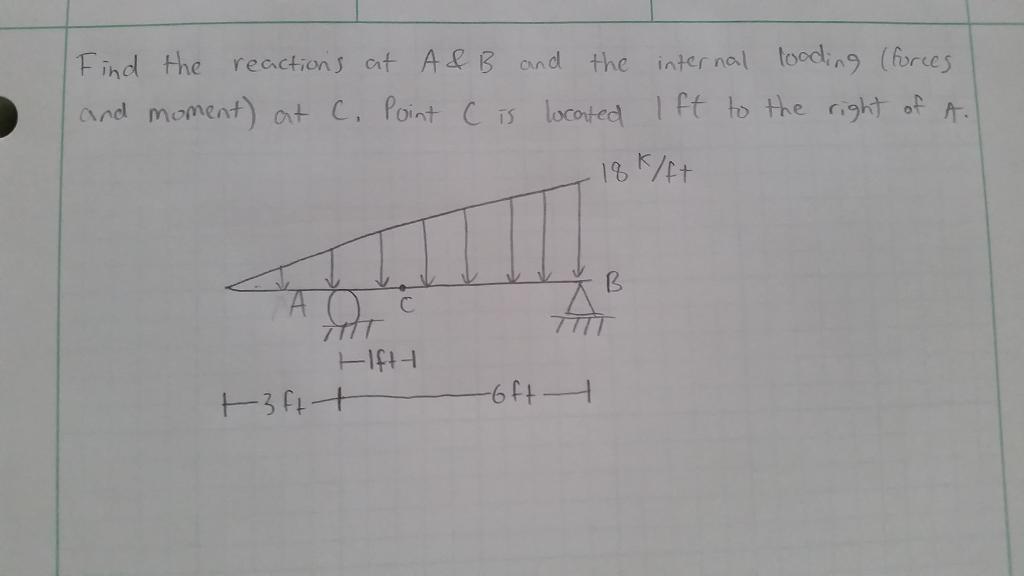 Find the reactions at A & B and the internal loading (forces
and moment) at C. Point C is located 1 ft to the right of A.
18 K/ft
A
C
B
1ft
3 ft
6 ft